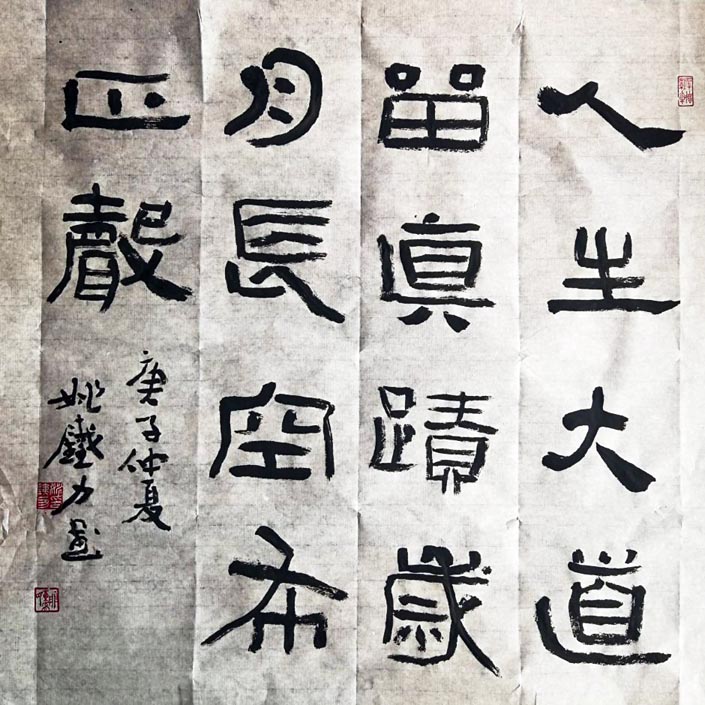 人生大道
留真蹟歲
月長空希
正聲
庚子仲夏
姚鐵力書